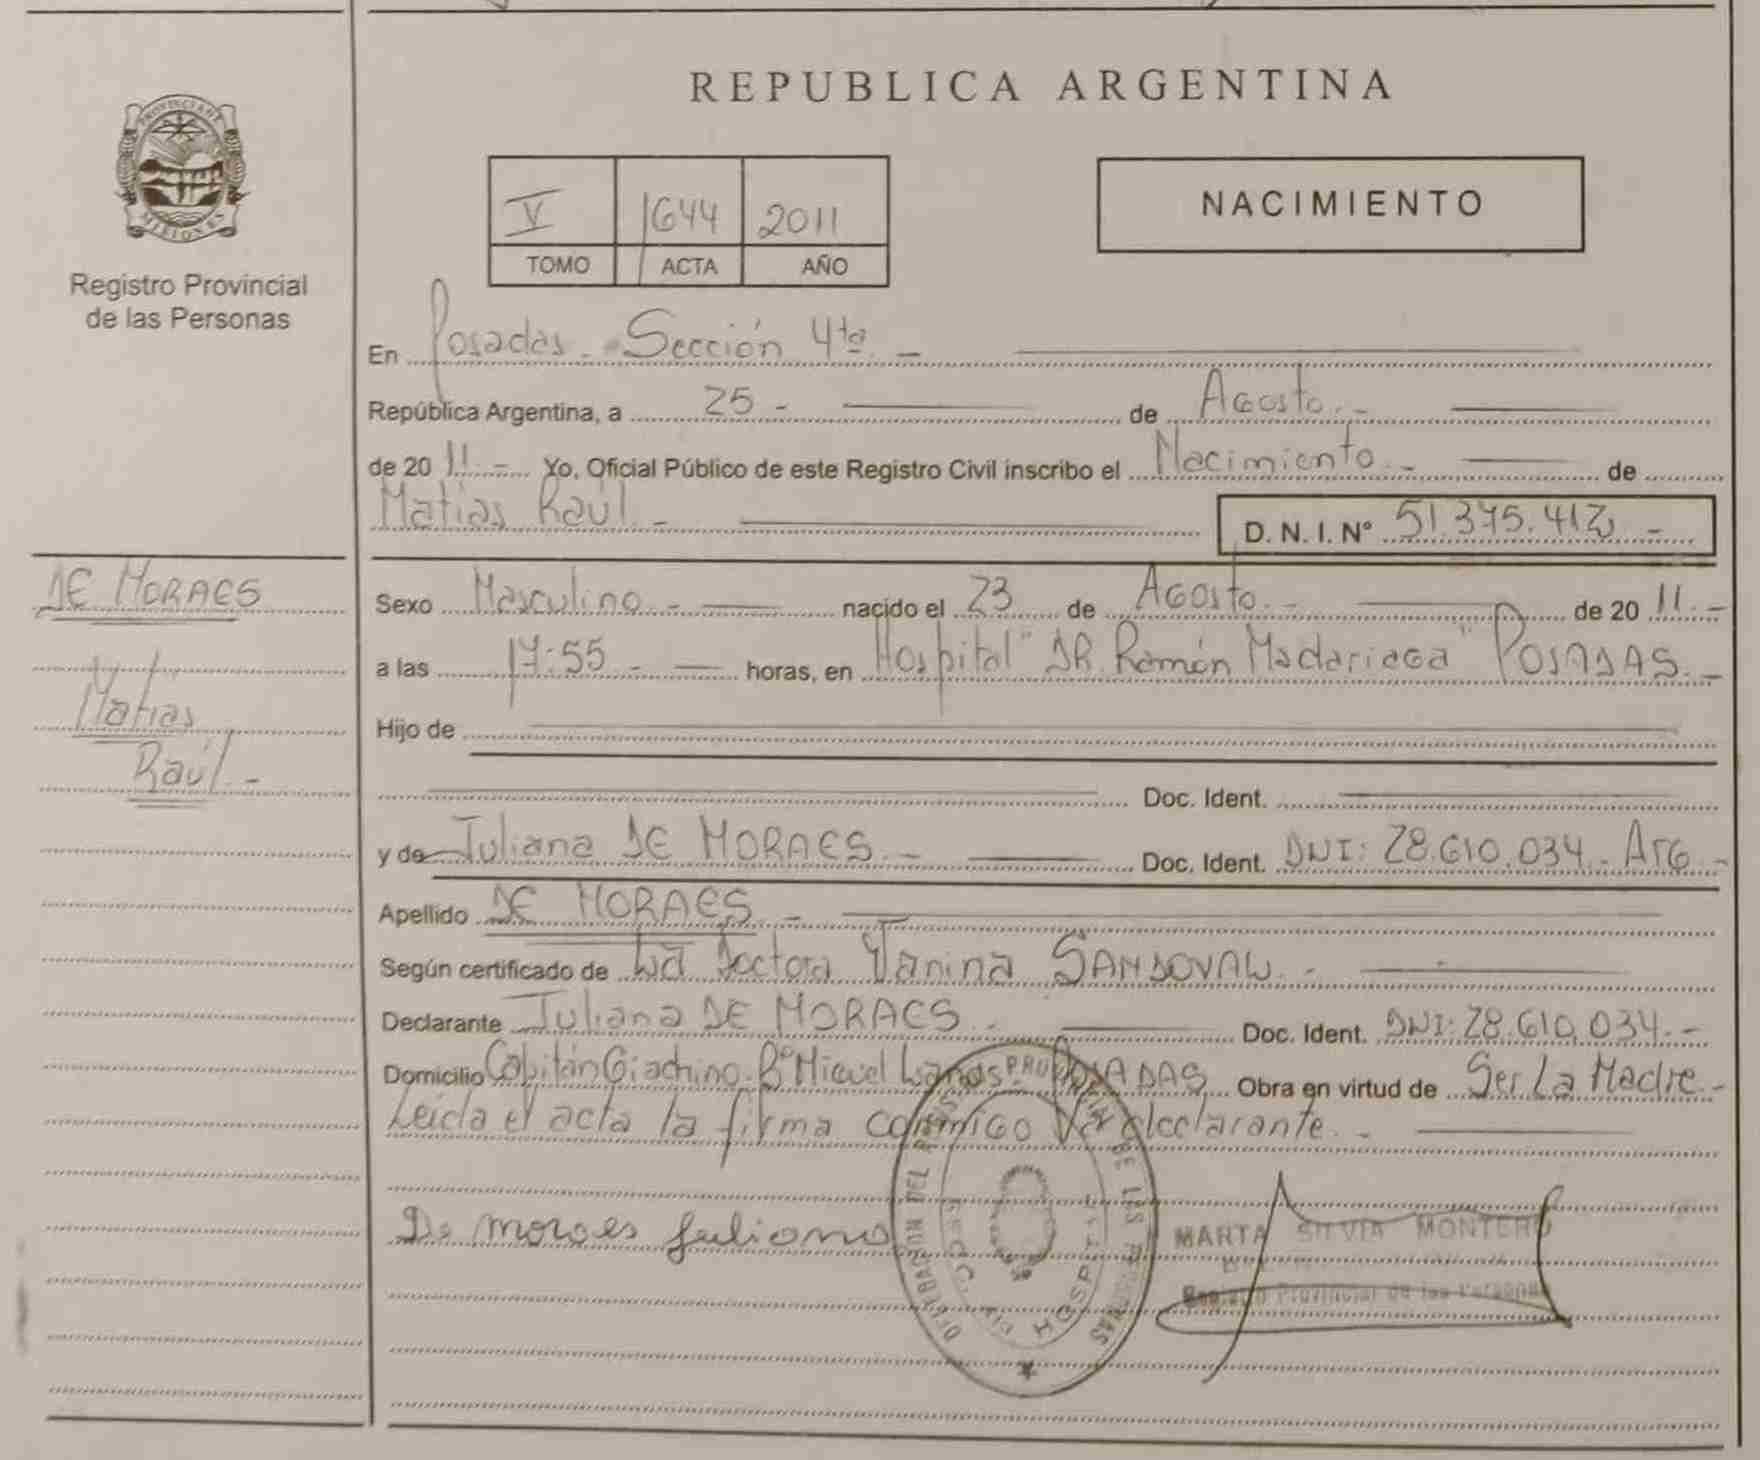 REPUBLICA ARGENTINA
PROVINCIA DE
MISIONES
Registro Provincial
de las Personas
V 1644 2011
TOMO ACTA AÑO
NACIMIENTO
En Posadas - Sección 4ta. -
República Argentina, a 25 - de Agosto. -
de 20 11. - Yo, Oficial Público de este Registro Civil inscribo el Nacimiento. - de
Matías Raúl. - D. N. I. Nº 51.375.412 -
DE MORAES
Matías
Raúl. -
Sexo Masculino - nacido el 23 de Agosto. - de 20 11. -
a las 17:55 - horas, en Hospital "DR. Ramón Madariaga" POSADAS. -
Hijo de
Doc. Ident.
y de Juliana DE MORAES. - Doc. Ident. DNI: 28.610.034. Arg. -
Apellido DE MORAES. -
Según certificado de La Doctora Vanina SANDOVAL. -
Declarante Juliana DE MORAES. - Doc. Ident. DNI: 28.610.034. -
Domicilio Capitán Giachino. Bº Miguel Lanús. POSADAS. Obra en virtud de Ser La Madre. -
Leída el acta la firma conmigo la declarante. -
De moraes Juliana
MARTA SILVIA MONTERO
Registro Provincial de las Personas
DEL DE LAS PERSONAS
SECC. HOSPITAL